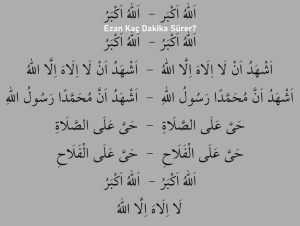 اَللهُ اَكْبَر – اَللهُ اَكْبَرُ
Ezan Kaç Dakika Sürer?
اَللهُ اَكْبَرُ – اَللهُ اَكْبَرُ
اَشْهَدُ اَنْ لَا اِلَاهَ اِلَّا اللهُ – اَشْهَدُ اَنْ لَا اِلَاهَ اِلَّا اللهُ
اَشْهَدُ اَنَّ مُحَمَّدًا رَسُولُ اللهِ – اَشْهَدُ اَنَّ مُحَمَّدًا رَسُولُ اللهِ
حَىَّ عَلَى الصَّلَاةِ – حَىَّ عَلَى الصَّلَاةِ
حَىَّ عَلَى الْفَلَاحِ – حَىَّ عَلَى الْفَلَاحِ
اَللهُ اَكْبَرُ – اَللهُ اَكْبَرُ
لَا اِلَاهَ اِلَّا اللهُ